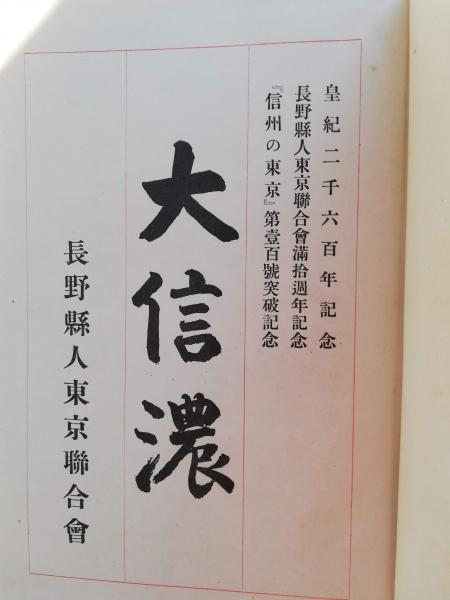 皇紀二千六百年記念
長野縣人東京聯合會滿拾週年記念
『信州の東京』第壹百號突破記念
大信濃
長野縣人東京聯合會